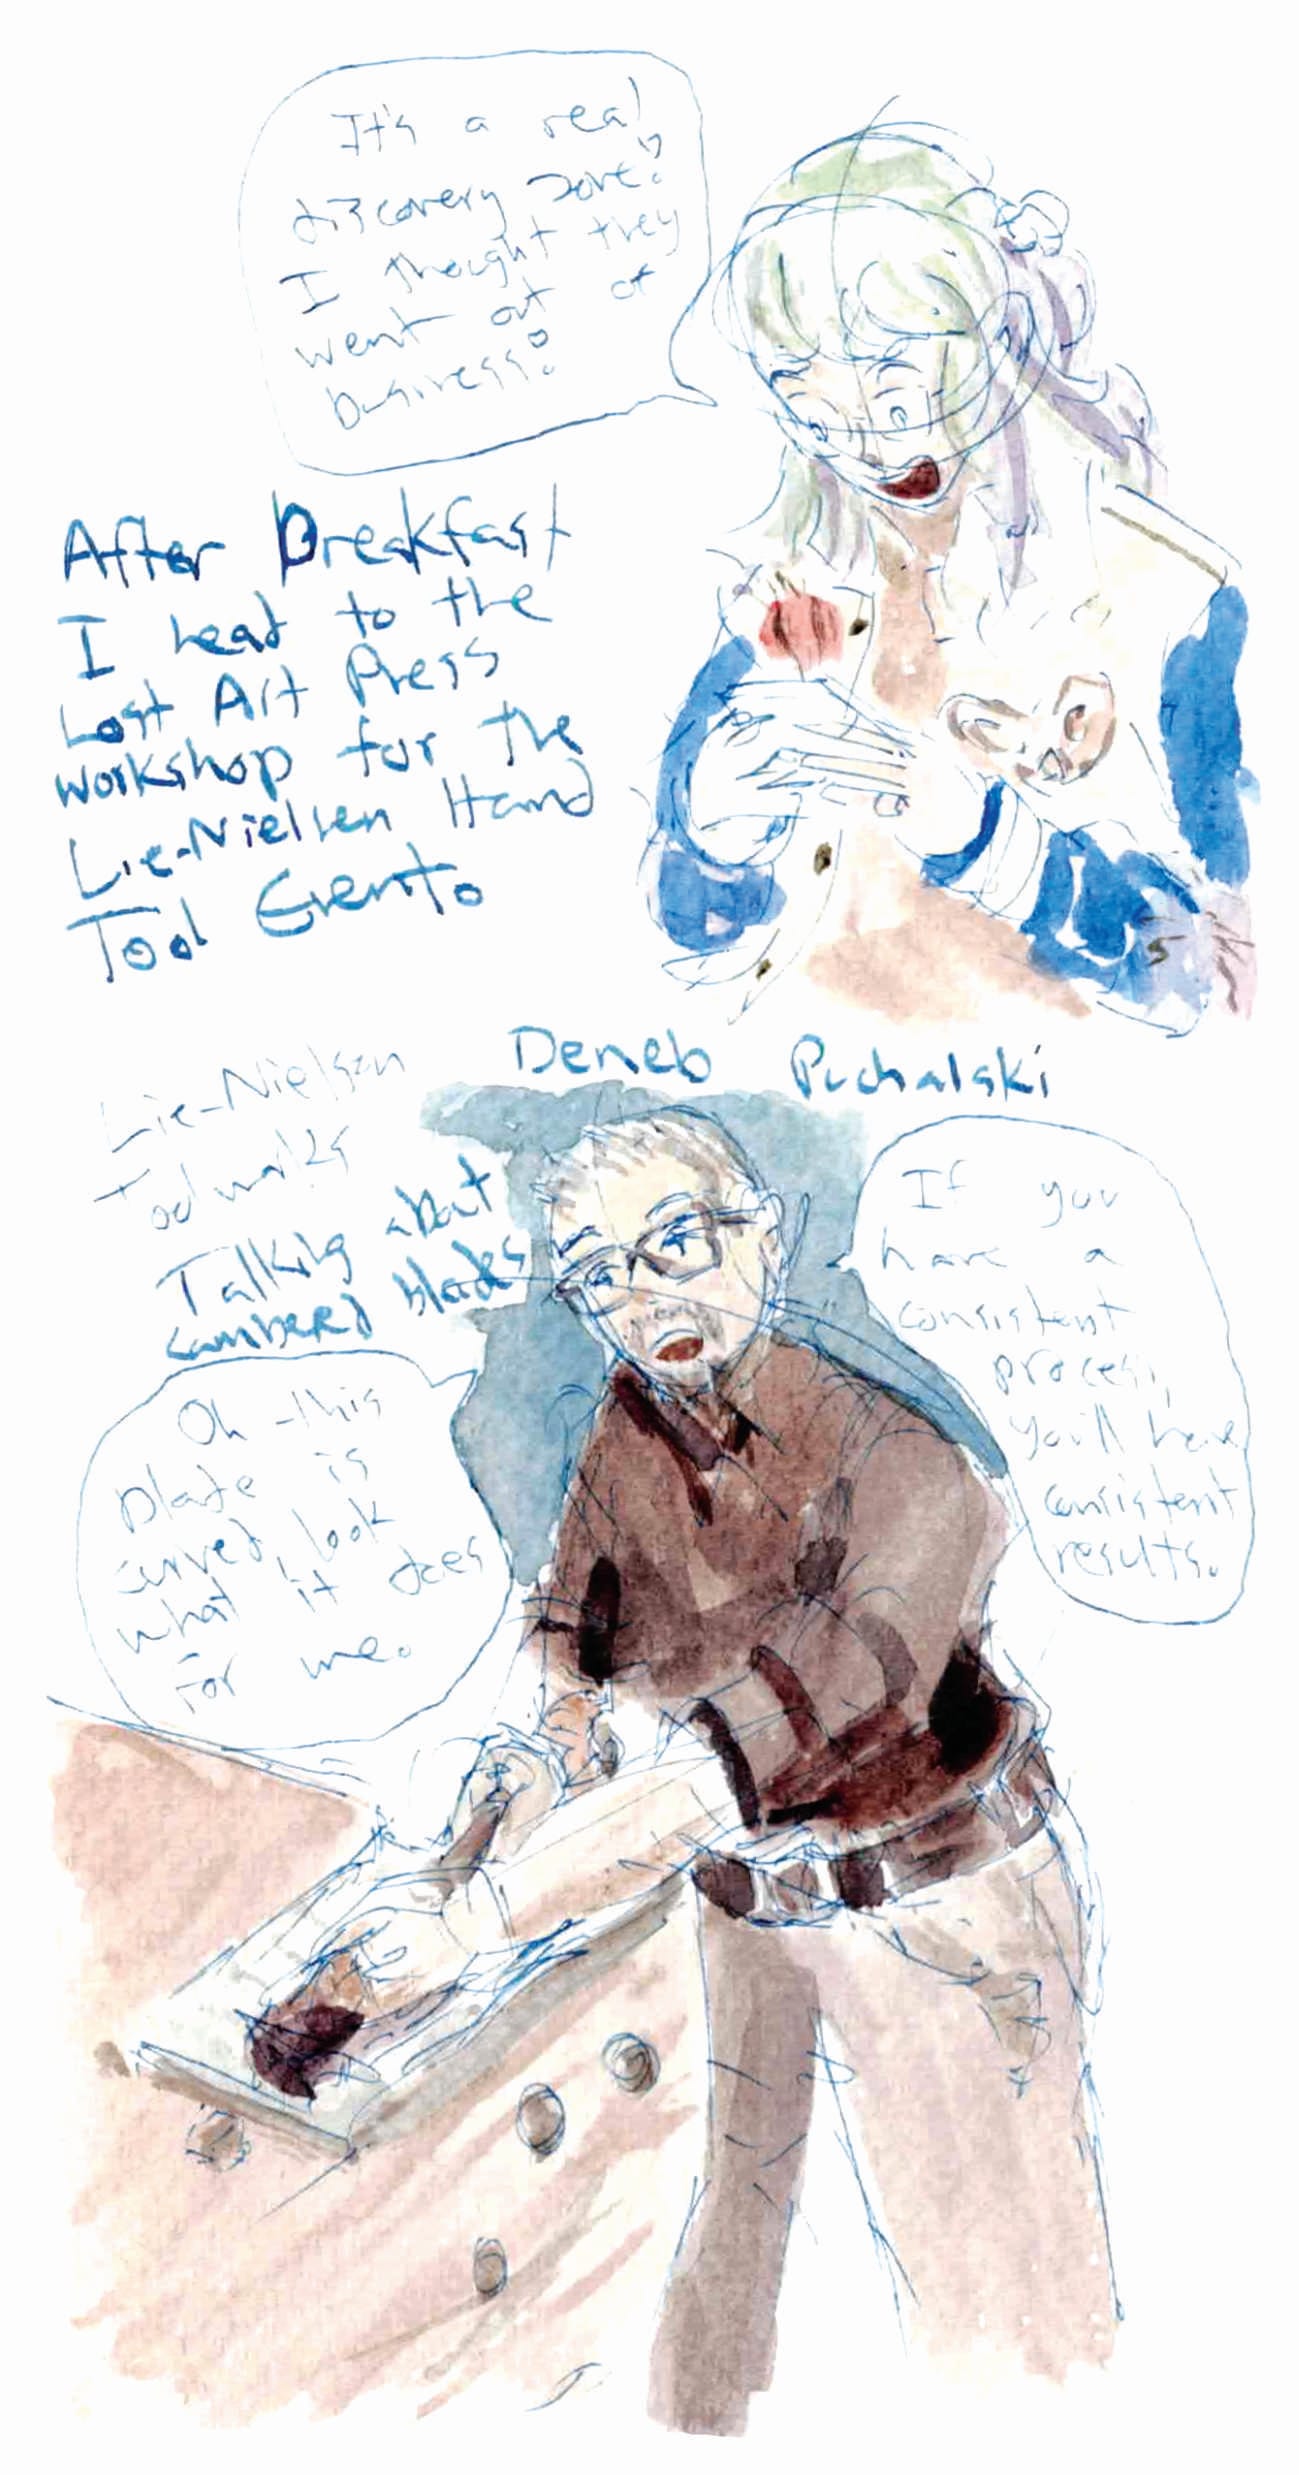 It's a real
discovery zone!
I thought they
went out of
business!
After Breakfast
I head to the
Lost Art Press
workshop for the
Lie-Nielsen Hand
Tool Event.
Deneb Puchalski
Lie-Nielson
Toolworks
Talking about
cambered blades
If you
have a
consistent
process,
you'll have
consistent
results.
Oh this
blade is
curved, look
what it does
for me.